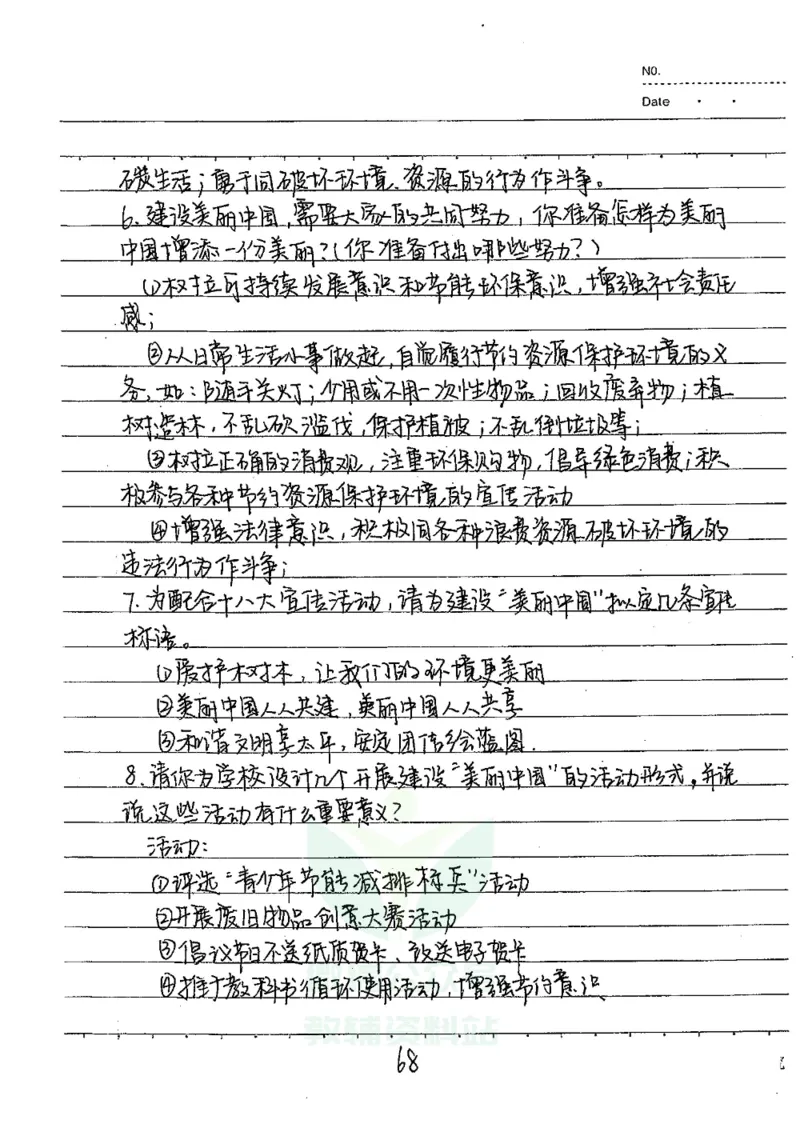 NO.
Date
碳生活；勇于同破坏环境、资源的行为作斗争。
6.建设美丽中国,需要大家的共同努力，你准备怎样为美丽
中国增添一份美丽?(你准备付出哪些努力？)
①树立可持续发展意识和节能环保意识,增强社会责任
感；
②从日常生活小事做起,自觉履行节约资源保护环境的义
务,如：随手关灯；少用或不用一次性物品；回收废弃物；植
树造林，不乱砍滥伐，保护植被；不乱倒垃圾等；
③树立正确的消费观，注重环保购物，倡导绿色消费；积
极参与各种节约资源保护环境的宣传活动
④增强法律意识，积极同各种浪费资源破坏环境的
违法行为作斗争；
7.为配合十八大宣传活动，请为建设“美丽中国”拟定几条宣传
标语。
①爱护树木，让我们的环境更美丽
②美丽中国人人共建，美丽中国人人共享
③和谐文明享太平，安定团结绘蓝图.
8.请你为学校设计几个开展建设“美丽中国”的活动形式,并说
说这些活动有什么重要意义？
活动:
①评选“青少年节能减排标兵”活动
②开展废旧物品创意大赛活动
③倡议节日不送纸质贺卡、改送电子贺卡
④推广教科书循环使用活动,增强节约意识
教辅资料站
68